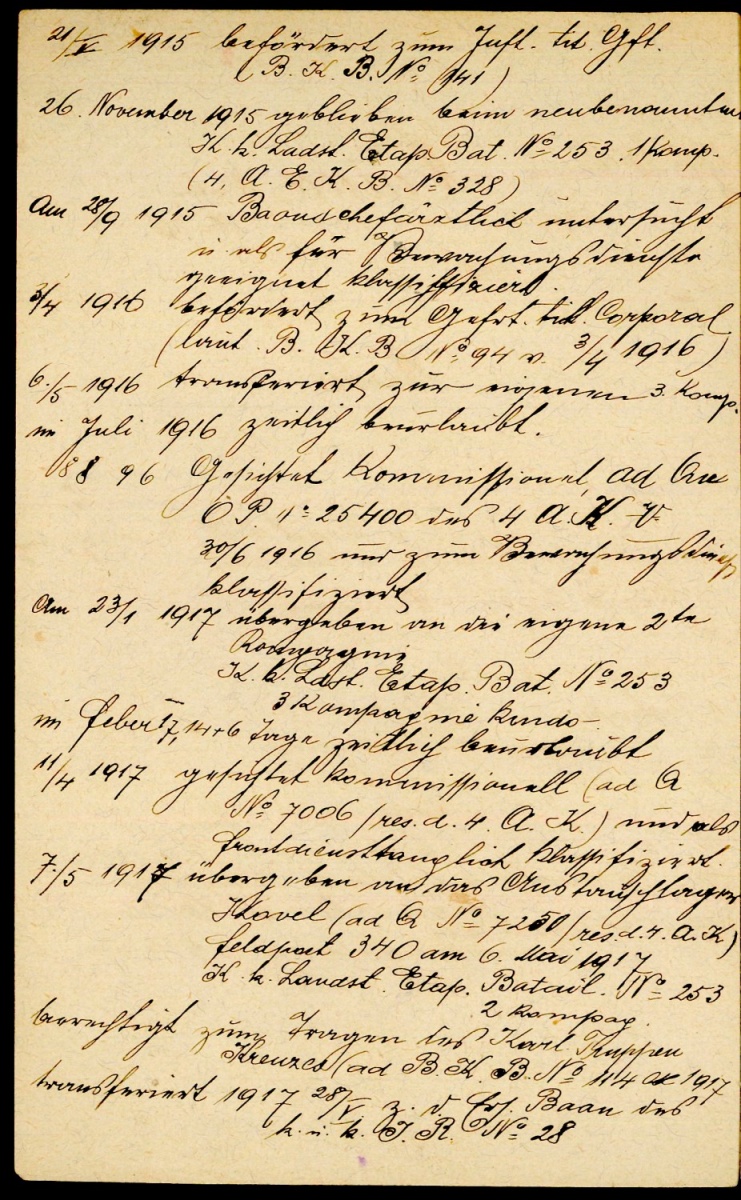 21/V 1915 befördert zum Inft. tit. Gft.
(B. K. B. No 141)
26. November 1915 geblieben beim neubenannten
K. k. Ladst. Etap. Bat. No 253. 1 Komp.
(4. A. E. K. B. No 328)
Am 28/9 1915 Baonschefärztlich untersucht
u. als für Bewachungsdienste
geeignet klassifiziert.
3/4 1916 befördert zum Gefrt. tit. Corporal
(laut. B. K. B No 94 v. 3/4 1916)
6./5 1916 transferiert zur eigenen 3. Komp.
im Juli 1916 zeitlich beurlaubt.
Gesichtet Kommissionel ad
OP. No 25400 des 4 A. K. v.
30/6 1916 und zum Bewachungsdienst
klassifiziert
Am 23/1 1917 übergeben an die eigene 2te
Kompagnie
K. k. Ldst. Etap. Bat. No 253
3 Kompagnie Kmdo
im Feber 17, 14+6 Tage zeitlich beurlaubt
11/4 1917 gesichtet kommissionell (ad Q
No 7006/res. d. 4. A. K.) und als
frontdiensttauglich klassifiziert.
7./5 1917 übergeben an das Austauschlager
Kovel (ad Q No 7250/res. d. 4. A. K)
Feldpost 340 am 6. Mai 1917
K. k. Landst. Etap. Batail. No 253
2 Kompag.
berechtigt zum Tragen des Karl Truppen
Kreuzes (ad B. K. B. No 114 ex 1917
transferiert 1917 28/V. z. d. Ers. Baon des
k. u. k. I. R. No 28